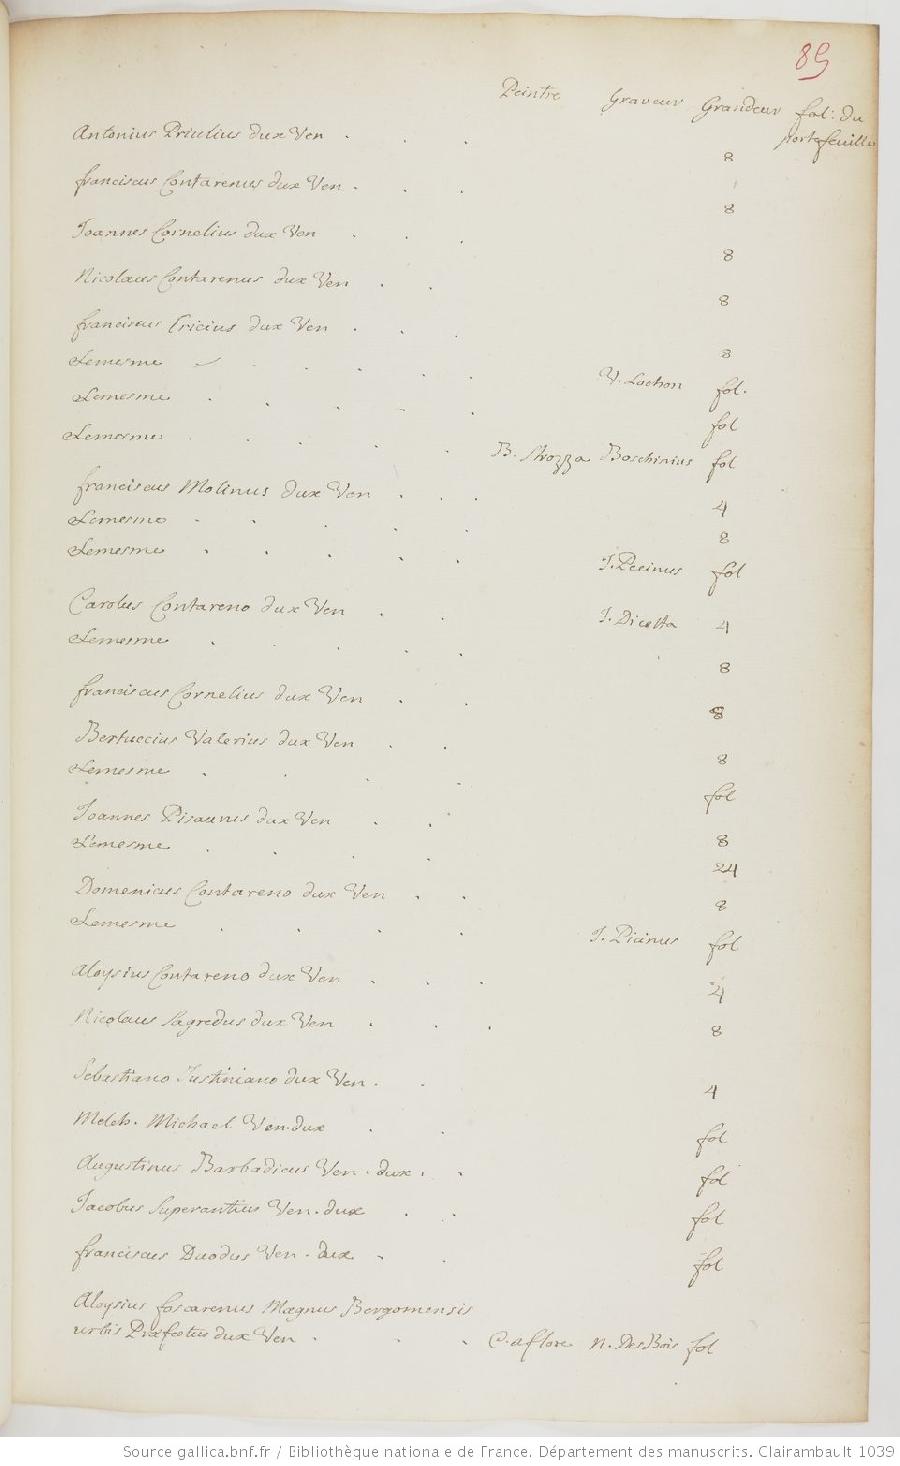 89
Peintre Graveur Grandeur fol: du
portefeuille
Antonius Priulius dux Ven
8
franciscus Contarenus dux Ven
8
Joannes Cornelius dux Ven
8
Nicolaus Contarenus dux Ven
8
franciscus Ericius dux Ven
8
Lemesme V. Lachon fol.
Lemesme fol
Lemesme B. Strozza Boschinius fol
franciscus Molinus dux Ven 4
Lemesme 8
Lemesme J. Pecinus fol
Carolus Contareno dux Ven J. 4
Lemesme 8
franciscus Cornelius dux Ven 8
Bertuccius Valerius dux Ven 8
Lemesme fol
Joannes Pisaurus dux Ven 8
Lemesme 24
Domenicus Contareno dux Ven 8
Lemesme J. Picinus fol
Aloysius Contareno dux Ven 4
Nicolaus Sagredus dux Ven 8
Sebastiano Justiniano dux Ven. 4
Melch. Michael Ven. dux fol
Augustinus Barbadicus Ven. dux. fol
Jacobus Superantius Ven. dux fol
franciscus Duodus Ven. dux fol
Aloysius foscarenus Magnus Bergomensis
urbis Præfectus dux Ven C. a flore N. DesBois fol
Source gallica.bnf.fr / Bibliothèque nationale de France. Département des manuscrits. Clairambault 1039